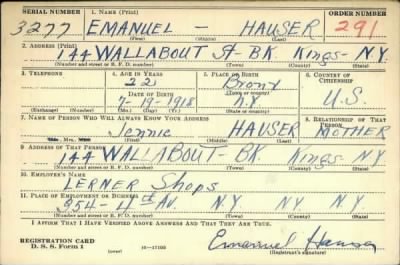 SERIAL NUMBER 1. NAME (Print) ORDER NUMBER
3277 EMANUEL — HAUSER 291
(First) (Middle) (Last)
2. ADDRESS (Print)
144 WALLABOUT St - BK. Kings - N.Y.
(Number and street or R. F. D. number) (Town) (County) (State)
3. TELEPHONE 4. AGE IN YEARS 5. PLACE OF BIRTH 6. COUNTRY OF CITIZENSHIP
22 Bronx
DATE OF BIRTH (Town or county)
7-19-1918 N.Y. U.S.
(Exchange) (Number) (Mo.) (Day) (Yr.) (State or country)
7. NAME OF PERSON WHO WILL ALWAYS KNOW YOUR ADDRESS 8. RELATIONSHIP OF THAT PERSON
Jennie HAUSER MOTHER
(Mr., Mrs., Miss) (First) (Middle) (Last)
9. ADDRESS OF THAT PERSON
144 WALLABOUT - BK. Kings N.Y.
(Number and street or R. F. D. number) (Town) (County) (State)
10. EMPLOYER'S NAME
LERNER Shops
11. PLACE OF EMPLOYMENT OR BUSINESS
354 - 4th Av. N.Y. N.Y. N.Y.
(Number and street or R. F. D. number) (Town) (County) (State)
I AFFIRM THAT I HAVE VERIFIED ABOVE ANSWERS AND THAT THEY ARE TRUE.
REGISTRATION CARD
D. S. S. FORM 1 (over) 16—17105 Emanuel Hauser
(Registrant's signature)